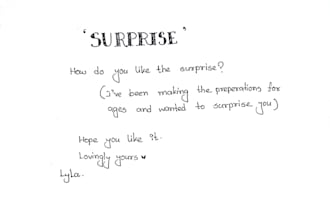 'SURPRISE'
How do you like the surprise?
(I've been making the preperations for
ages and wanted to surprise you)
Hope you like it.
Lovingly yours ♥
Lyla.